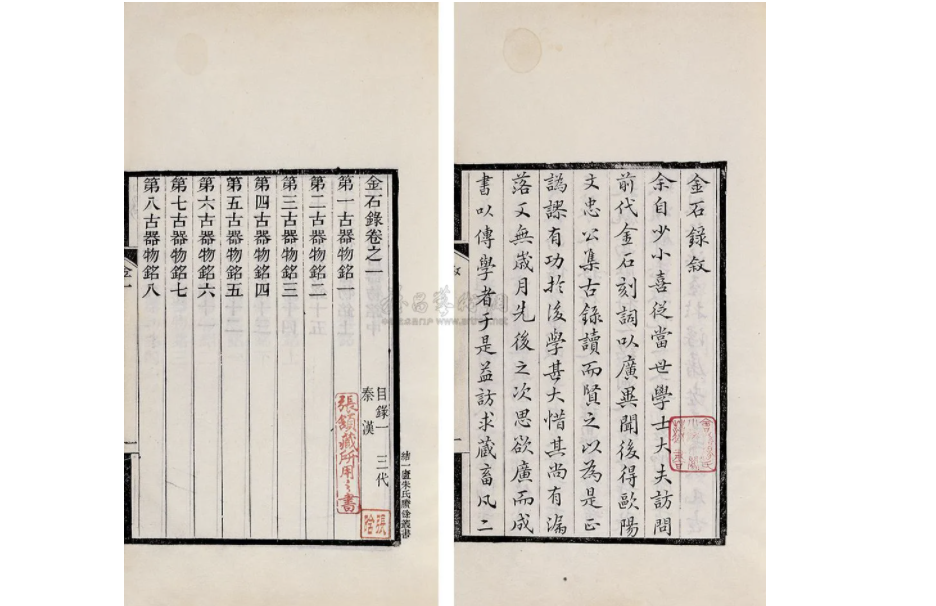 金石錄敘
余自少小喜從當世學士大夫訪問
前代金石刻詞以廣異聞後得歐陽
文忠公集古錄讀而賢之以為是正
譌謬有功於後學甚大惜其尚有漏
落又無歲月先後之次思欲廣而成
書以傳學者于是益訪求藏畜凡二
結一廬朱氏賸餘叢書
金石錄卷之一
目錄一 三代
秦漢
第一古器物銘一
第二古器物銘二
第三古器物銘三
第四古器物銘四
第五古器物銘五
第六古器物銘六
第七古器物銘七
第八古器物銘八
張
藏所用之書